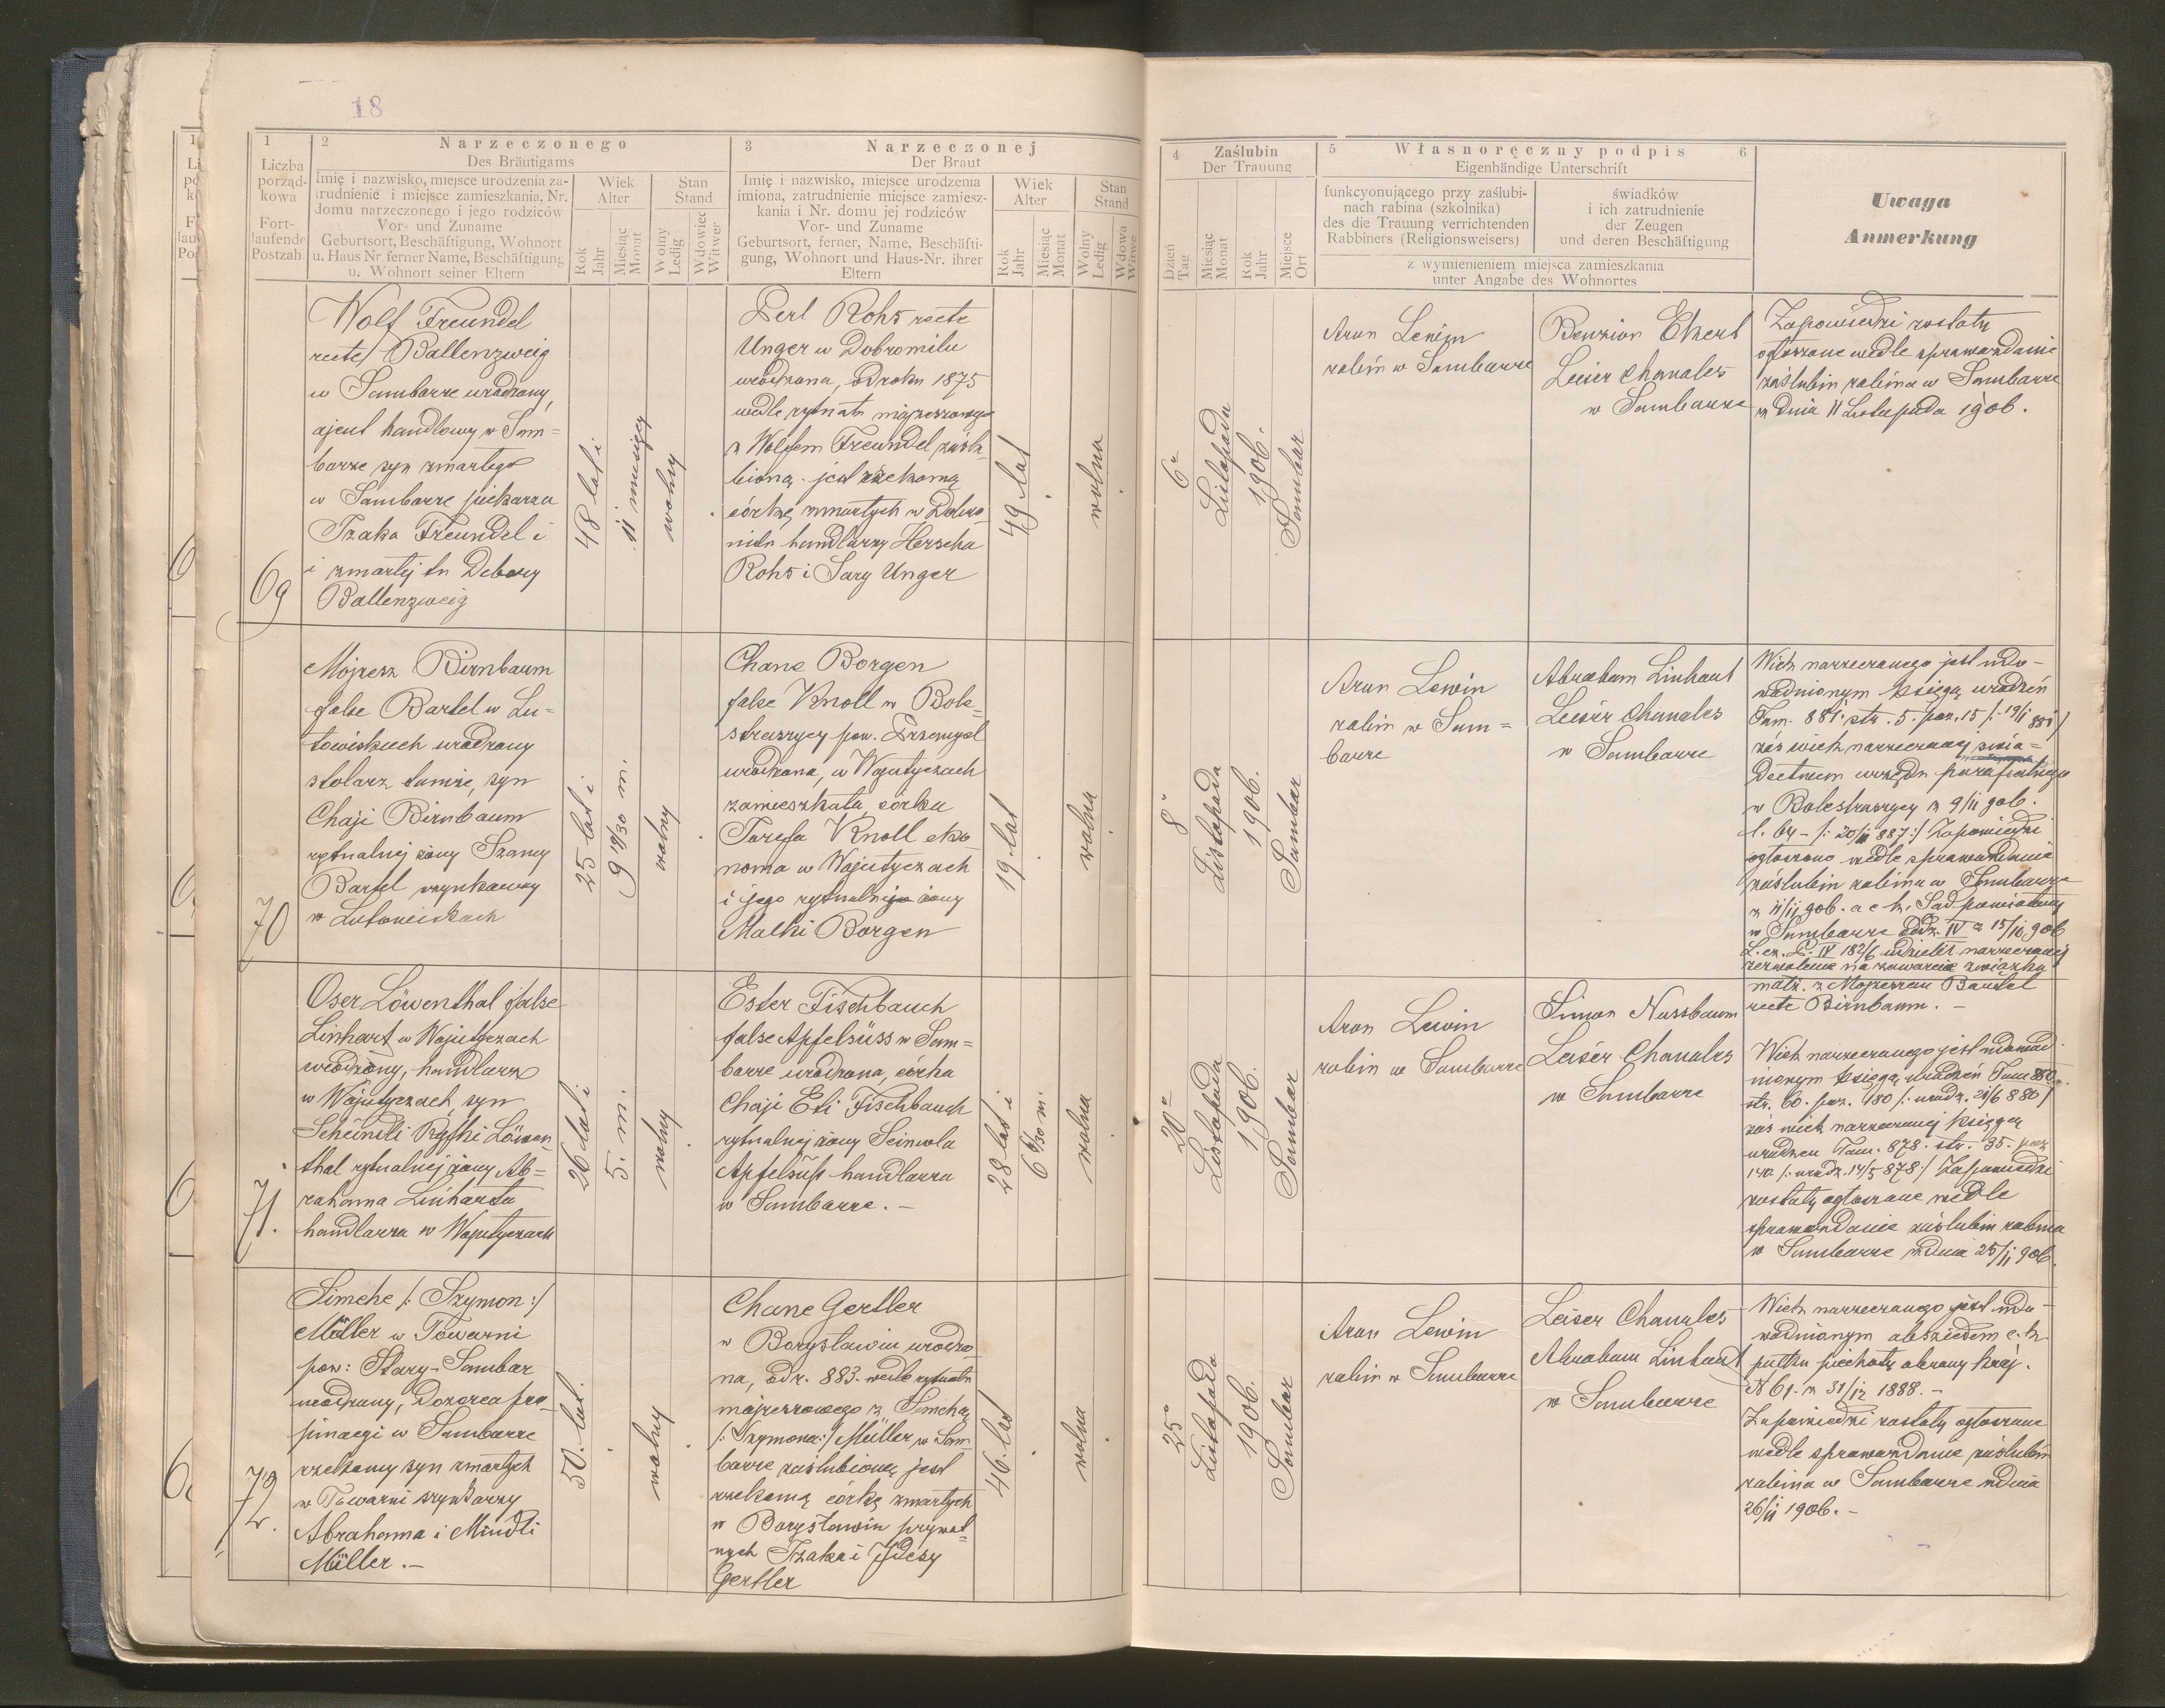 18
1
2
Narzeczonego
Des Bräutigams
3
Narzeczonej
Der Braut
4
Zaślubin
Der Trauung
5
Własnoręczny podpis
6
Eigenhändige Unterschrift
Liczba
porząd-
kowa
Fort-
laufende
Postzah.
Imię i nazwisko, miejsce urodzenia za-
trudnienie i miejsce zamieszkania, Nr.
domu narzeczonego i jego rodziców
Vor- und Zuname
Geburtsort, Beschäftigung, Wohnort
u. Haus Nr ferner Name, Beschäftigung
u. Wohnort seiner Eltern
Wiek
Alter
Rok
Jahr
Miesiąc
Monat
Stan
Stand
Wolny
Ledig
Wdowiec
Witwer
Imię i nazwisko, miejsce urodzenia
imiona, zatrudnienie miejsce zamiesz-
kania i Nr. domu jej rodziców
Vor- und Zuname
Geburtsort, ferner, Name, Beschäfti-
gung, Wohnort und Haus-Nr. ihrer
Eltern
Wiek
Alter
Rok
Jahr
Miesiąc
Monat
Stan
Stand
Wolny
Ledig
Wdowa
Witwe
Dzień
Tag
Miesiąc
Monat
Rok
Jahr
Miejsce
Ort
funkcyonującego przy zaślubi-
nach rabina (szkolnika)
des die Trauung verrichtenden
Rabbiners (Religionsweisers)
świadków
i ich zatrudnienie
der Zeugen
und deren Beschäftigung
z wymienieniem miejsca zamieszkania
unter Angabe des Wohnortes
Uwaga
Anmerkung
69
Wolf Freundel
recte Ballenzweig
w Samborze urodzony,
ajent handlowy w Sam=
borze syn zmarłego
w Samborze piekarza
Izaka Freundel i
i zmarłej tu Debory
Ballenzweig
48 lat i
11 miesięcy
wolny
Perl Rohs recte
Unger w Dobromilu
urodzona, od roku 1875
wedle rytuału mojżeszowego
z Wolfem Freundel zaślu-
bioną jest rzekomą
córkę zmarłych w Dobro-
milu handlarzy Herscha
Rohs i Sary Unger
49 lat
wolna
6
Listopada
1906.
Sambor
Aron Lewin
rabin w Samborze
Benzion Ekert
Leiser Chanales
w Samborze
Zapowiedzi zostały
ogłoszone wedle sprawozdania
zaślubin rabina w Samborze
z dnia 11 Listopada 1906.
70
Mojżesz Birnbaum
false Bartel w Lu=
towiskach urodzony
stolarz tamże, syn
Chaji Birnbaum
rytualnej żony Szamy
Bartel szynkarzy
w Lutowiskach
25 lat i
9 19/30 m.
wolny
Chane Borgen
false Knoll w Bole=
straszycy pow. Przemysl
urodzona, w Wojutyczach
zamieszkała córka
Josefa Knoll eko
noma w Wojutyczach
i jego rytualnej żony
Malki Borgen
19 lat
wolna
8
Listopada
1906.
Sambor
Aron Lewin
rabin w Sam=
borze
Abraham Linhart
Leiser Chanales
w Samborze
Wiek narzeczonego jest udo-
wodnionym księgą urodzeń
Tom. 881. str. 5. poz. 15 /: 19/1 881/
zaś wiek narzeczonej świa=
dectwem urzędu parafialnego
w Bolestraszycy z 9/11 906.
ogłoszono wedle sprawozdania
zaślubin rabina w Samborze
z 11/11 906. a c. k. Sąd powiatowy
w Samborze oddz. IV z 15/10 906
L. cz. P. IV 182/6 udzielił narzeczonej
zezwolenie na zawarcie związku
małż. z Mojżeszem Bartel
recte Birnbaum. -
71.
Oser Löwenthal false
Linhart w Wojutyczach
urodzony, handlarz
w Wojutyczach syn
Scheindli Ryfki Löwen
thal rytualnej żony Ab=
rahama Linharta
handlarza w Wojutyczach
26 lat i
5. m.
wolny
Ester Fischbauch
false Apfelsüss w Sam=
borze urodzona, córka
Chaji Eti Fischbauch
rytualnej żony Seinwla
Apfelsüß handlarza
w Samborze. -
28 lat i
6 6/30 m.
wolna
20
Listopada
1906.
Sambor
Aron Lewin
rabin w Samborze
Simon Nussbaum
Leiser Chanales
w Samborze
Wiek narzeczonego jest udowod
nionym księgą urodzeń Tom 880.
str. 60. poz. 180 /: urodz. 21/6 880/
zaś wiek narzeczonej księgą
urodzeń Tom. 878. str. 35. poz
140. /: urodz. 14/5 878:/ Zapowiedzi
zostały ogłoszone wedle
sprawozdania zaślubin rabina
w Samborze z dnia 25/11 906.
72.
Simche /: Szymon:/
Müller w Towarni
pow: Stary-Sambor
urodzony, dozorca pro-
pinacyi w Samborze
rzekomy syn zmarłych
w Towarni szynkarzy
Abrahama i Mindli
Müller. -
50. lat.
wolny
Chane Gertler
w Borysławiu urodzo
na, od r. 883. wedle rytuału
mojżeszowego z Simchą
/: Szymona:/ Müller w Sam
borze zaślubioną jest
rzekomą córką zmarłych
w Borysławiu prywat=
nych Izaka i Idesy
Gertler
46. lat
wolna
25
Listopada
1906.
Sambor
Aron Lewin
rabin w Samborze
Leiser Chanales
Abraham Linhart
w Samborze
Wiek narzeczonego jest udo-
wodnionym abszedem c. k.
pułku piechoty obrony kraj.
N 61. z 31/12 1888. -
Zapowiedzi zostały ogłoszone
wedle sprawozdania zaślubin
rabina w Samborze z dnia
26/11 1906. -